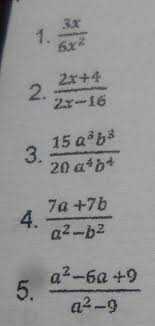 1. 3x/6x²
2. 2x+4/2x−16
3. 15 a³b³/20 a⁴b⁴
4. 7a +7b/a²−b²
5. a²−6a +9/a²−9